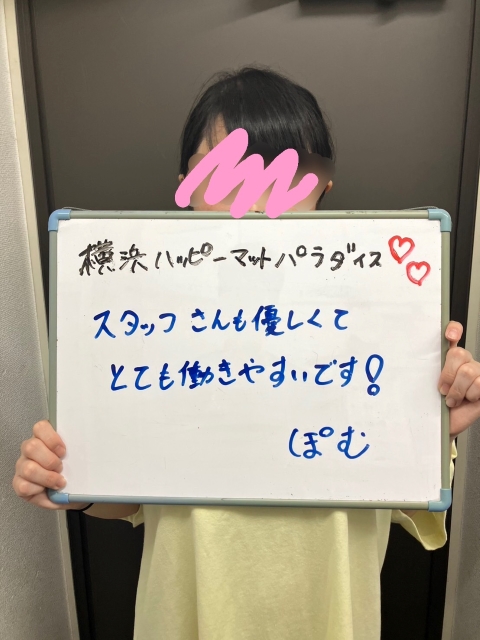 横浜ハッピーマットパラダイス♡♡
スタッフさんも優しくて
とても働きやすいです!
ぽむ